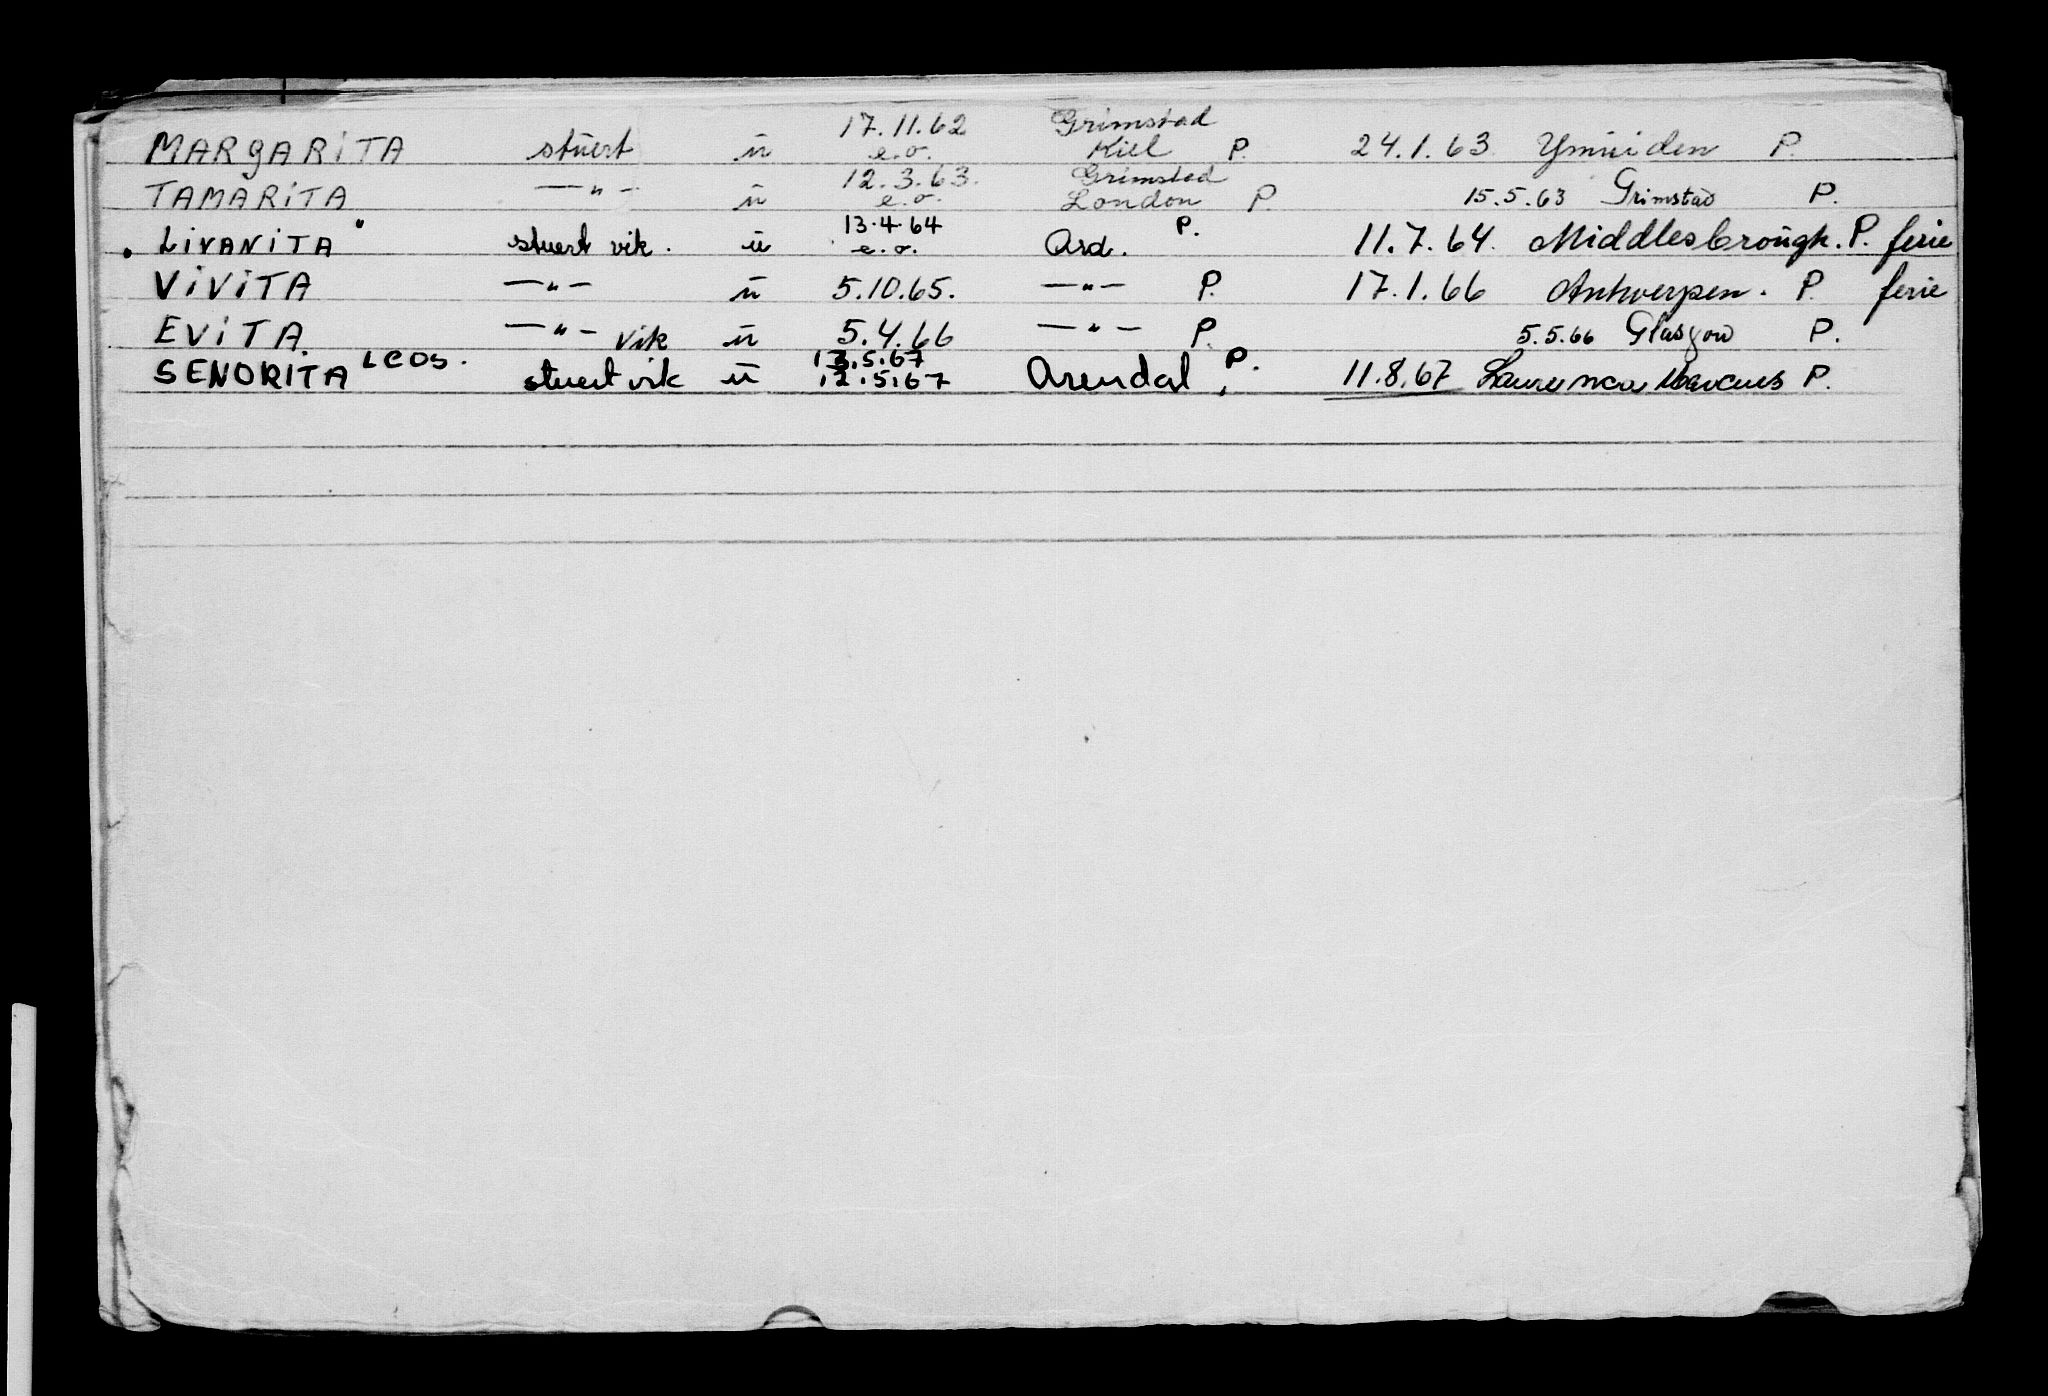 17.11.62 Grimstad
MARGARITA stuert u e.o. Kiel P. 24.1.63 Ymuiden P.
12.3.63. Grimstad
TAMARITA —"— u e.o. London P. 15.5.63 Grimstad P.
13.4.64 P.
"LIVANITA" stuert vik. u e.o. Ard. 11.7.64. Middlesbrough. P. ferie
VIVITA —"— u 5.10.65. —"— P. 17.1.66 Antwerpen. P. ferie
EVITA —"— vik u 5.4.66 —"— P. 5.5.66 Glasgow P.
13.5.67
SENORITA stuert vik u 12.5.67 Arendal, P. 11.8.67 P.